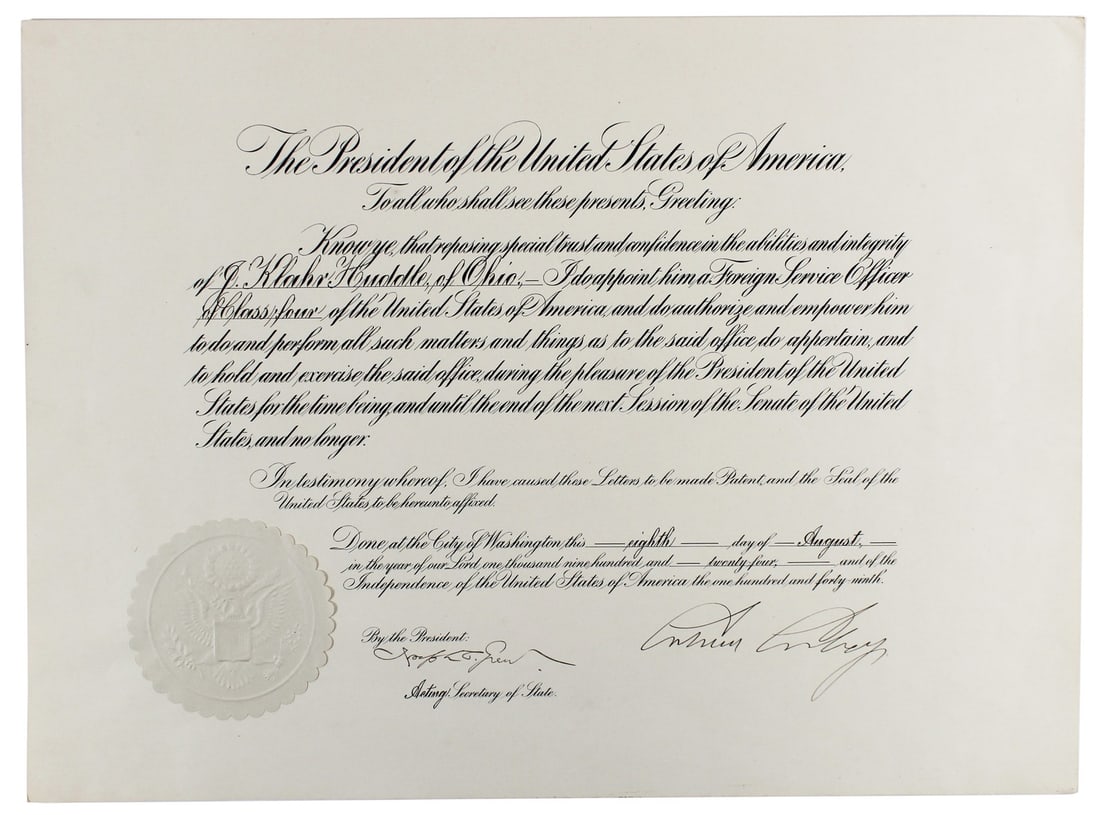 The President of the United States of America,
To all who shall see these presents, Greeting:
Know ye, that reposing special trust and confidence in the abilities and integrity
of J. Klahr Huddle, of Ohio, — I do appoint him, a Foreign Service Officer
of Class four of the United States of America, and do authorize and empower him
to do and perform all such matters and things as to the said office do appertain, and
to hold and exercise the said office, during the pleasure of the President of the United
States for the time being, and until the end of the next Session of the Senate of the United
States, and no longer.
In testimony whereof, I have caused these Letters to be made Patent, and the Seal of the
United States to be hereunto affixed.
Done at the City of Washington this — eighth — day of — August, —
in the year of our Lord one thousand nine hundred and — twenty-four, — and of the
Independence of the United States of America the one hundred and forty-ninth.
By the President:
Joseph C. Grew
Acting Secretary of State.